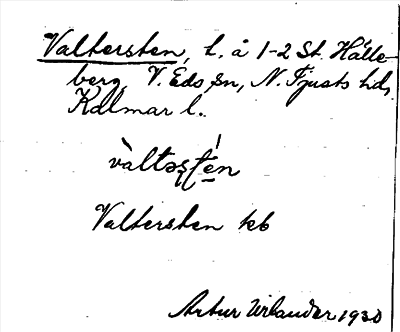 Valtersten, l. å 1-2 St. Hälle-
berg, V. Eds sn, N. Tjusts hd,
Kalmar l.
Valtersten kb
Artur Virlander 1930